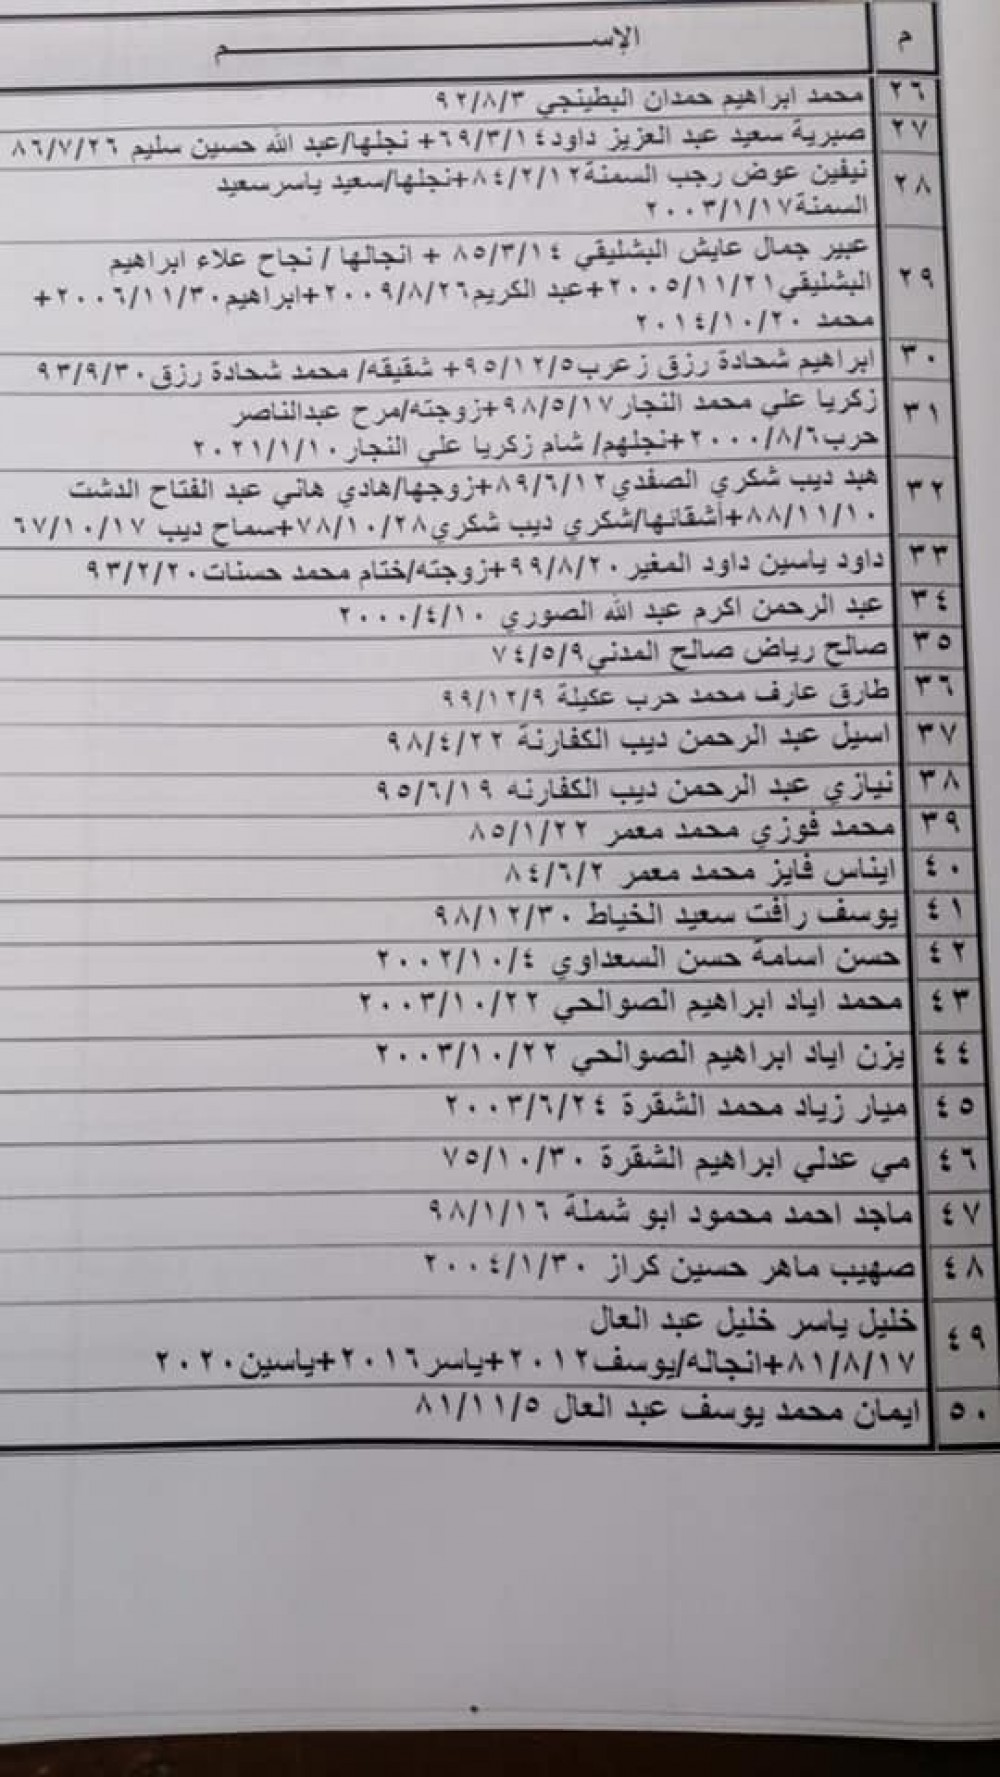 م الإســـــــــــم
٢٦ محمد ابراهيم حمدان البطينجي ٩٢/٨/٣
٢٧ صبرية سعيد عبد العزيز داود٦٩/٣/١٤+ نجلها/عبد الله حسين سليم ٨٦/٧/٢٦
٢٨ نيفين عوض رجب السمنة٨٤/٢/١٢+نجلها/سعيد ياسرسعيد
السمنة٢٠٠٣/١/١٧
٢٩ عبير جمال عايش البشليقي ٨٥/٣/١٤ + انجالها / نجاح علاء ابراهيم
البشليقي٢٠٠٥/١١/٢١+عبد الكريم٢٠٠٩/٨/٢٦+ابراهيم٢٠٠٦/١١/٣٠+
محمد ٢٠١٤/١٠/٢٠
٣٠ ابراهيم شحادة رزق زعرب٩٥/١٢/٥+ شقيقه/ محمد شحادة رزق٩٣/٩/٣٠
٣١ زكريا علي محمد النجار٩٨/٥/١٧+زوجته/مرح عبدالناصر
حرب٢٠٠٠/٨/٦+نجلهم/ شام زكريا علي النجار٢٠٢١/١/١٠
٣٢ هبد ديب شكري الصفدي٨٩/٦/١٢+زوجها/هادي هاني عبد الفتاح الدشت
٨٨/١١/١٠+أشقائها/شكري ديب شكري٧٨/١٠/٢٨+سماح ديب ٦٧/١٠/١٧
٣٣ داود ياسين داود المغير٩٩/٨/٢٠+زوجته/ختام محمد حسنات٩٣/٢/٢٠
٣٤ عبد الرحمن اكرم عبد الله الصوري ٢٠٠٠/٤/١٠
٣٥ صالح رياض صالح المدني٧٤/٥/٩
٣٦ طارق عارف محمد حرب عكيلة ٩٩/١٢/٩
٣٧ اسيل عبد الرحمن ديب الكفارنة ٩٨/٤/٢٢
٣٨ نيازي عبد الرحمن ديب الكفارنه ٩٥/٦/١٩
٣٩ محمد فوزي محمد معمر ٨٥/١/٢٢
٤٠ ايناس فايز محمد معمر ٨٤/٦/٢
٤١ يوسف رأفت سعيد الخياط ٩٨/١٢/٣٠
٤٢ حسن اسامة حسن السعداوي ٢٠٠٢/١٠/٤
٤٣ محمد اياد ابراهيم الصوالحي ٢٠٠٣/١٠/٢٢
٤٤ يزن اياد ابراهيم الصوالحي ٢٠٠٣/١٠/٢٢
٤٥ ميار زياد محمد الشقرة ٢٠٠٣/٦/٢٤
٤٦ مي عدلي ابراهيم الشقرة ٧٥/١٠/٣٠
٤٧ ماجد احمد محمود ابو شملة ٩٨/١/١٦
٤٨ صهيب ماهر حسين كراز ٢٠٠٤/١/٣٠
٤٩ خليل ياسر خليل عبد العال
٨١/٨/١٧+انجاله/يوسف٢٠١٢+ياسر٢٠١٦+ياسين٢٠٢٠
٥٠ ايمان محمد يوسف عبد العال ٨١/١١/٥